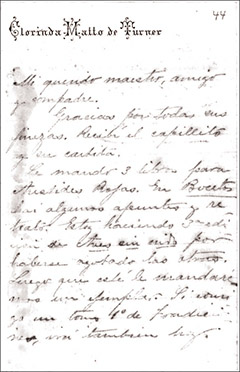 44
Clorinda Matto de Turner
Mi querido maestro, amigo
y compadre.
Gracias por todas sus
finezas. Recibí el capillito
y su cartita.
Le mando 3 libros para
Aristides Rojas. En Bocetos
hai algunos apuntes y re
trato. Estoy haciendo 3ª edi
ción de Aves sin nido por
haberse agotado las otras.
Luego que esté le mandaré
un ejemplar. Si
un tomo 4º de
irá tambien